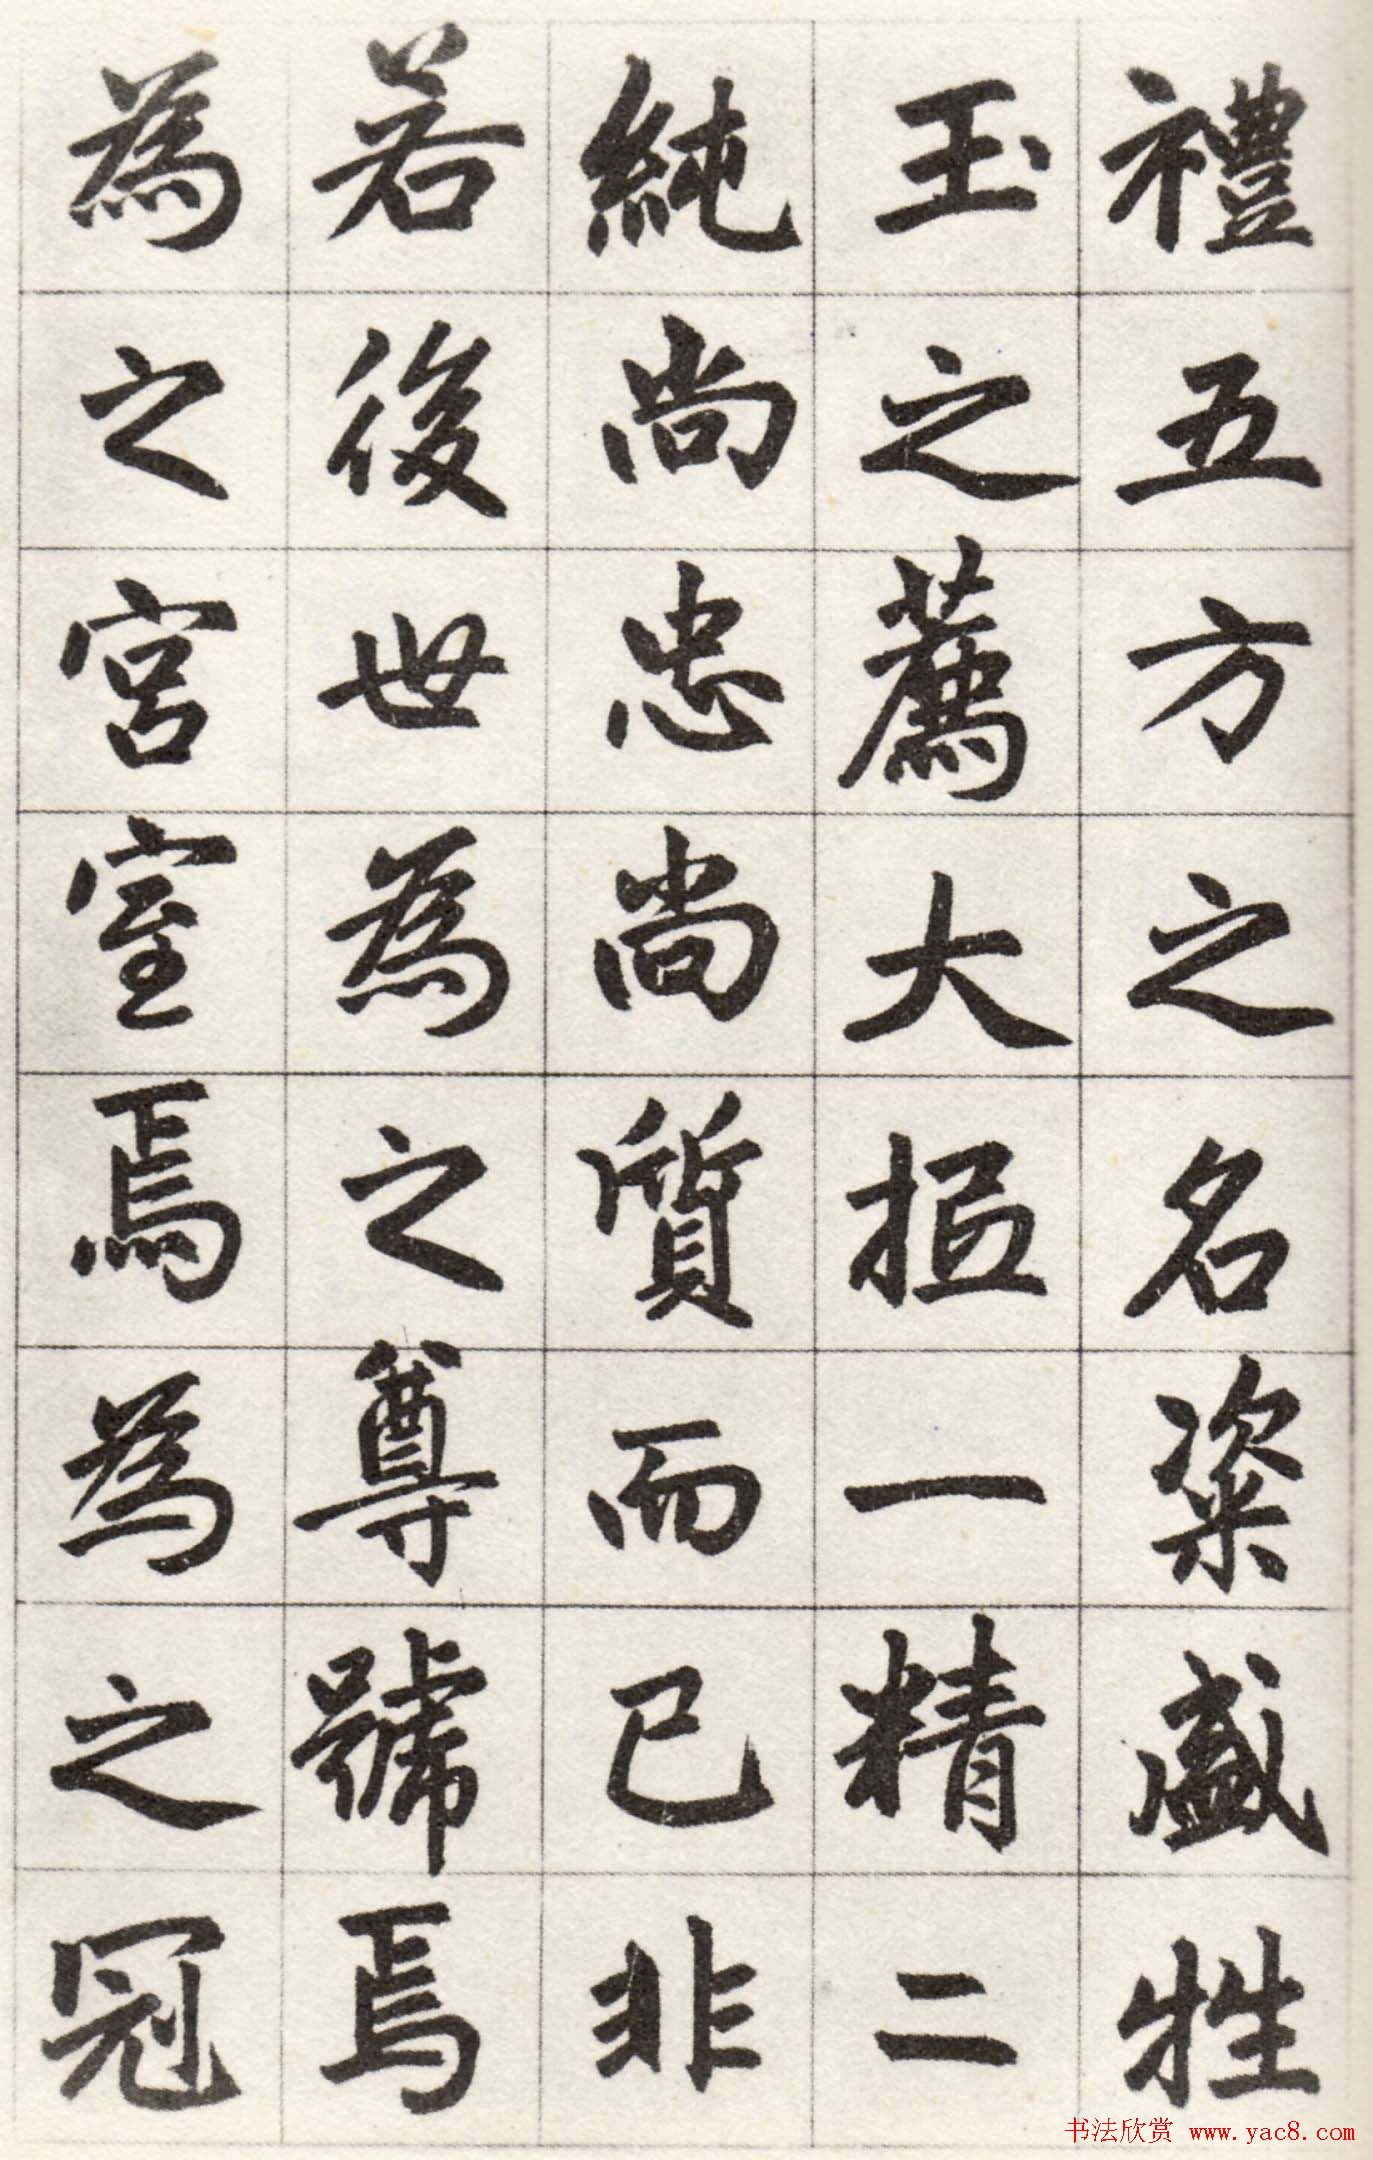 禮五方之名粢盛牲
玉之薦大抵一精二
純尚忠尚質而已非
若後世為之尊號焉
為之宮室焉為之冠
书法欣赏 www.yac8.com